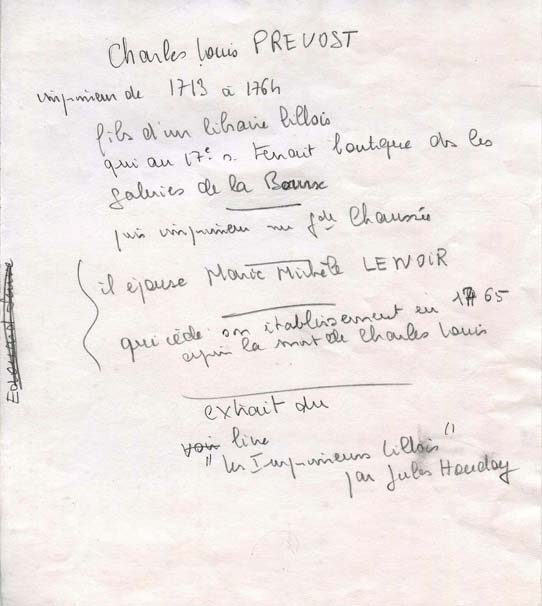 Charles Louis PREVOST
imprimeur de 1713 à 1764
fils d'un libraire lillois
qui au 17e s. tenait boutique ds les
galeries de la Bourse
puis imprimeur rue gde Chaussée
il épouse Marie Michèle LENOIR
qui cède son établissement en 1765
après la mort de Charles Louis
extrait du
voir livre
"les Imprimeurs lillois"
par Jules Houdoy